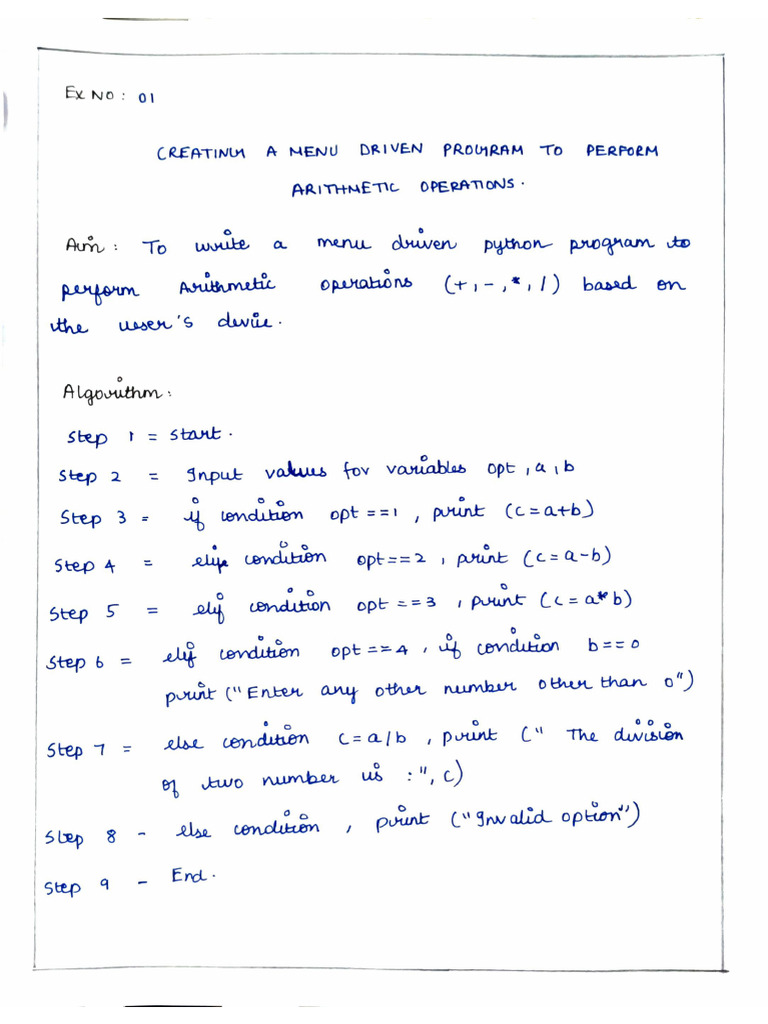 Ex NO : 01
CREATING A MENU DRIVEN PROGRAM TO PERFORM
ARITHMETIC OPERATIONS.
Aim : To write a menu driven python program to
perform Arithmetic operations (+,-,*,/) based on
the user's device.
Algorithm:
Step 1 = Start.
Step 2 = Input values for variables opt, a, b
Step 3 = if condition opt==1, print (c=a+b)
Step 4 = elif condition opt==2, print (c=a-b)
Step 5 = elif condition opt==3, print (c=a*b)
Step 6 = elif condition opt==4, if condition b==0
print ("Enter any other number other than 0")
Step 7 = else condition c=a/b, print (" The division
of two number is :", c)
Step 8 - else condition, print ("Invalid option")
Step 9 - End.